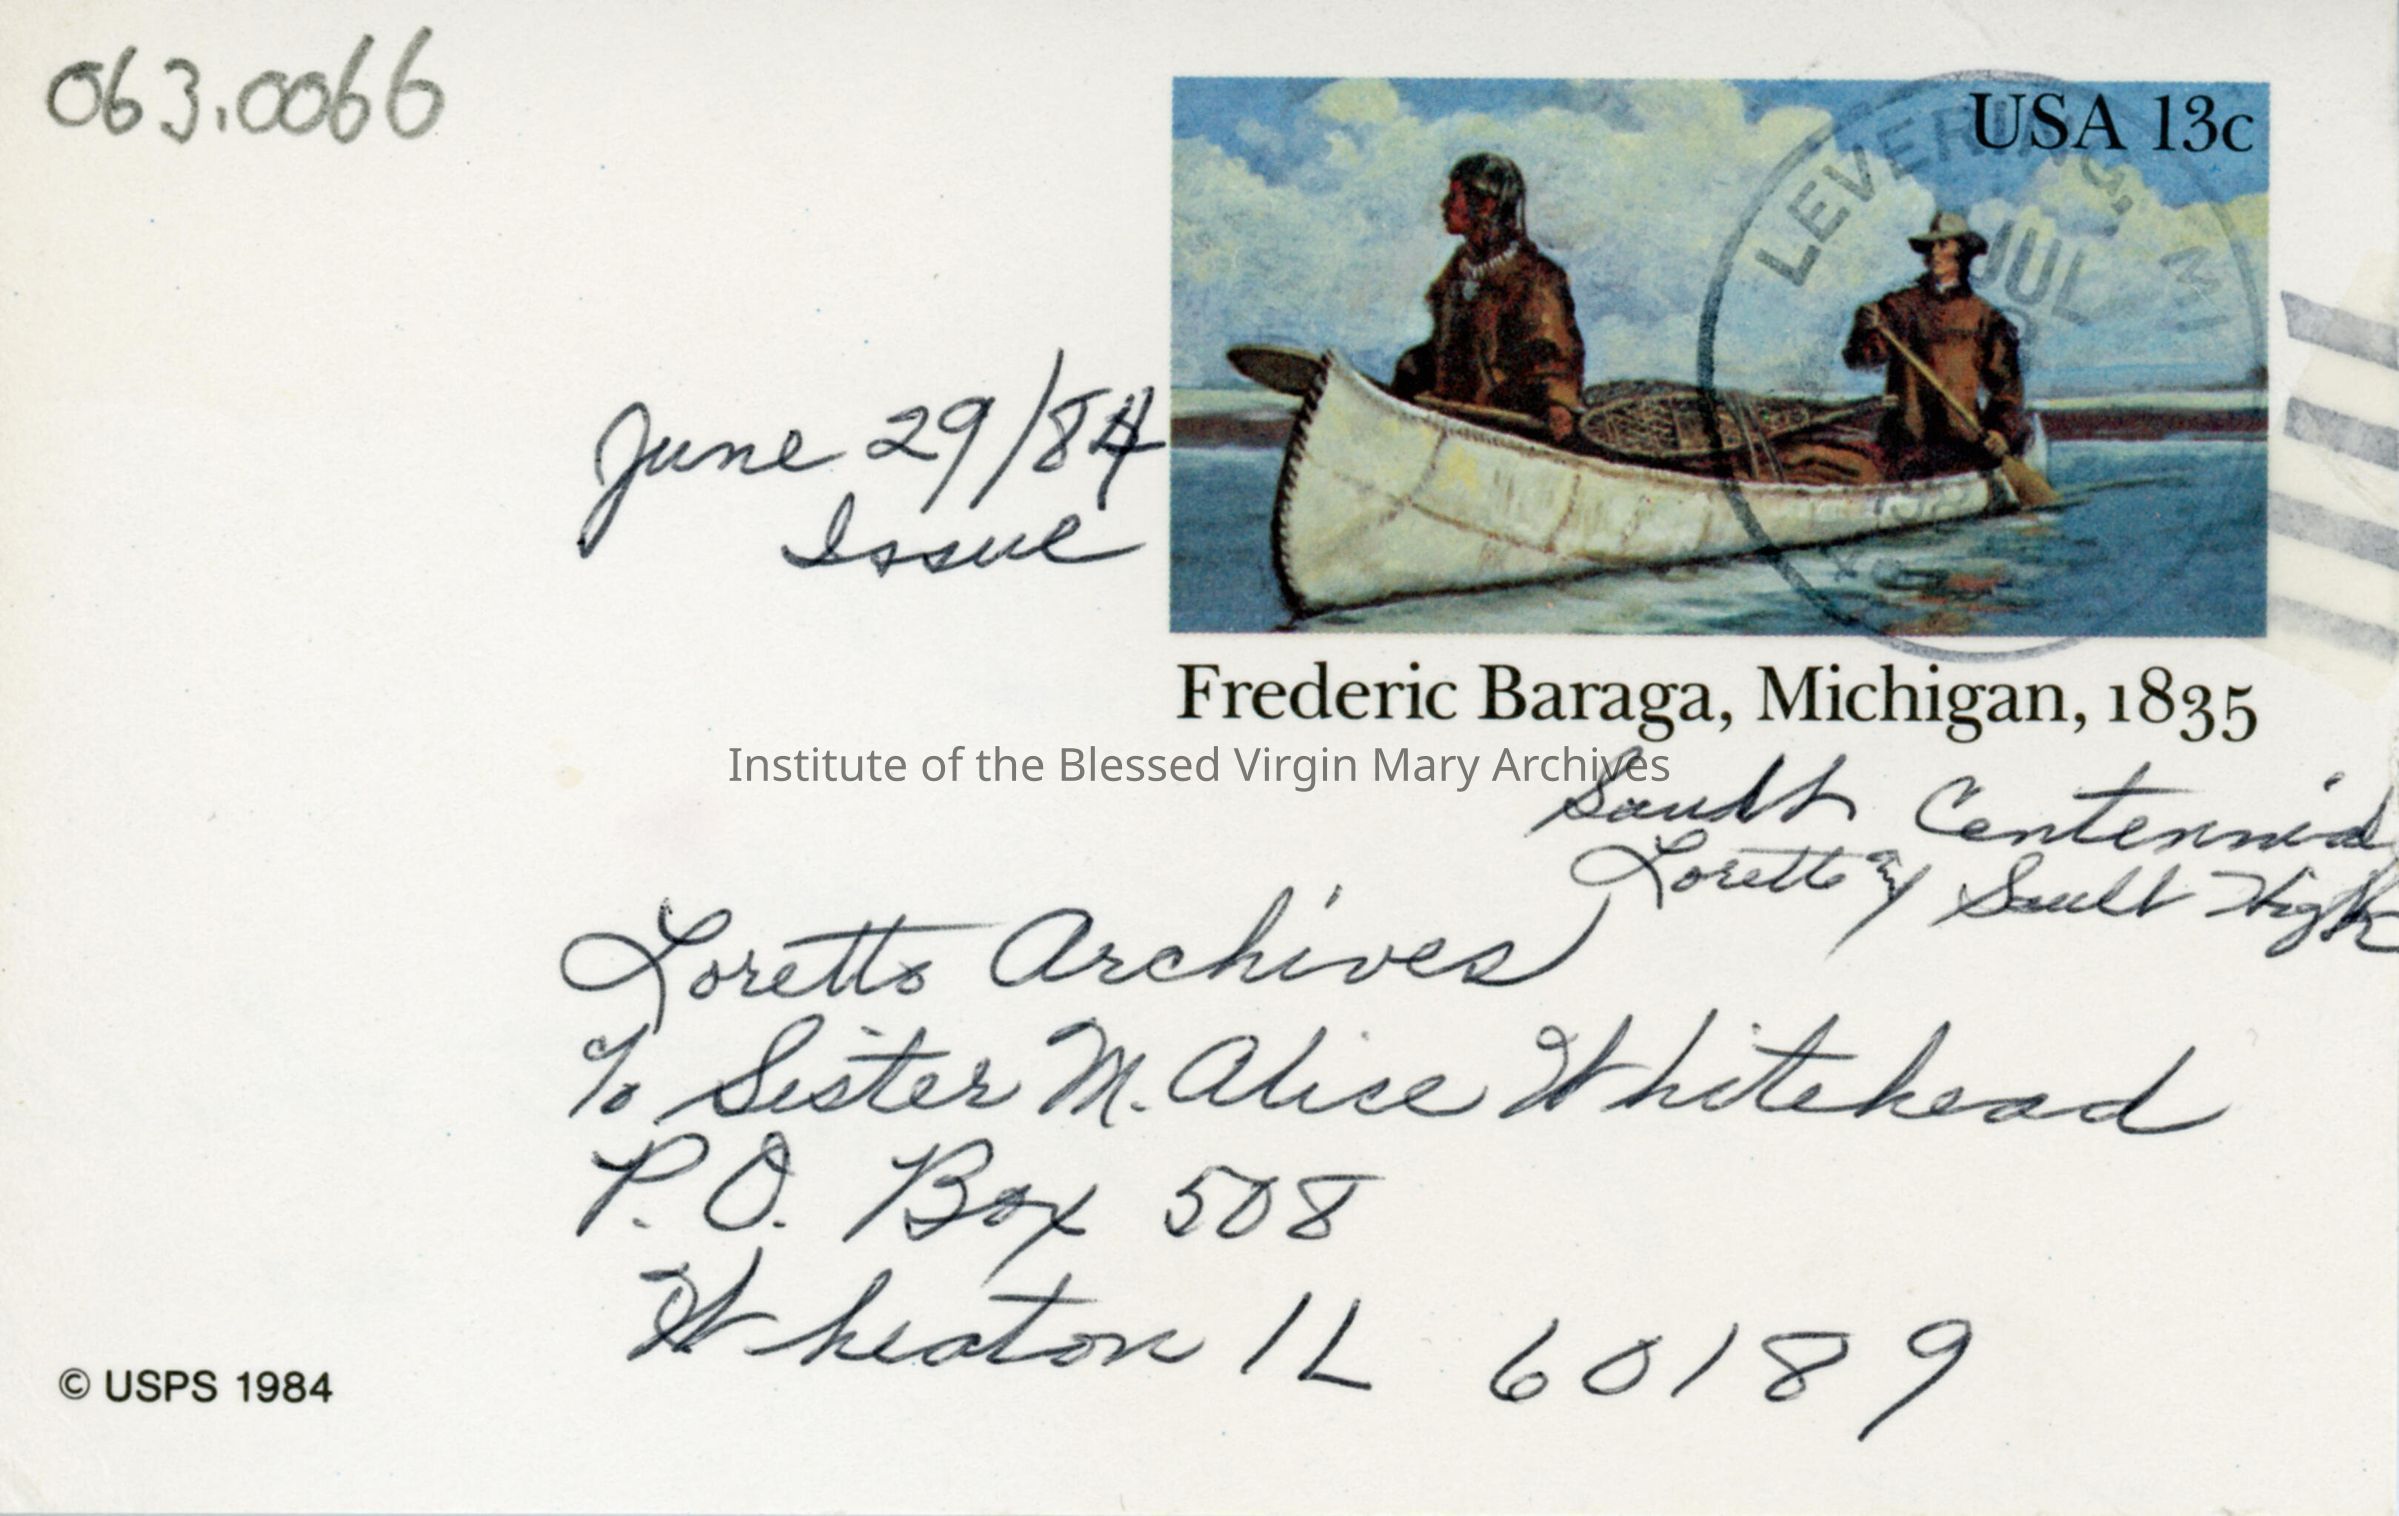 063.0066
USA 13c
LEVERING, MI
JUL
June 29/84
Issue
Frederic Baraga, Michigan, 1835
Institute of the Blessed Virgin Mary Archives
Sault Centennial
Loretto Sault High
Loretto Archives
c/o Sister M. Alice Whitehead
P.O. Box 508
Wheaton IL 60189
© USPS 1984